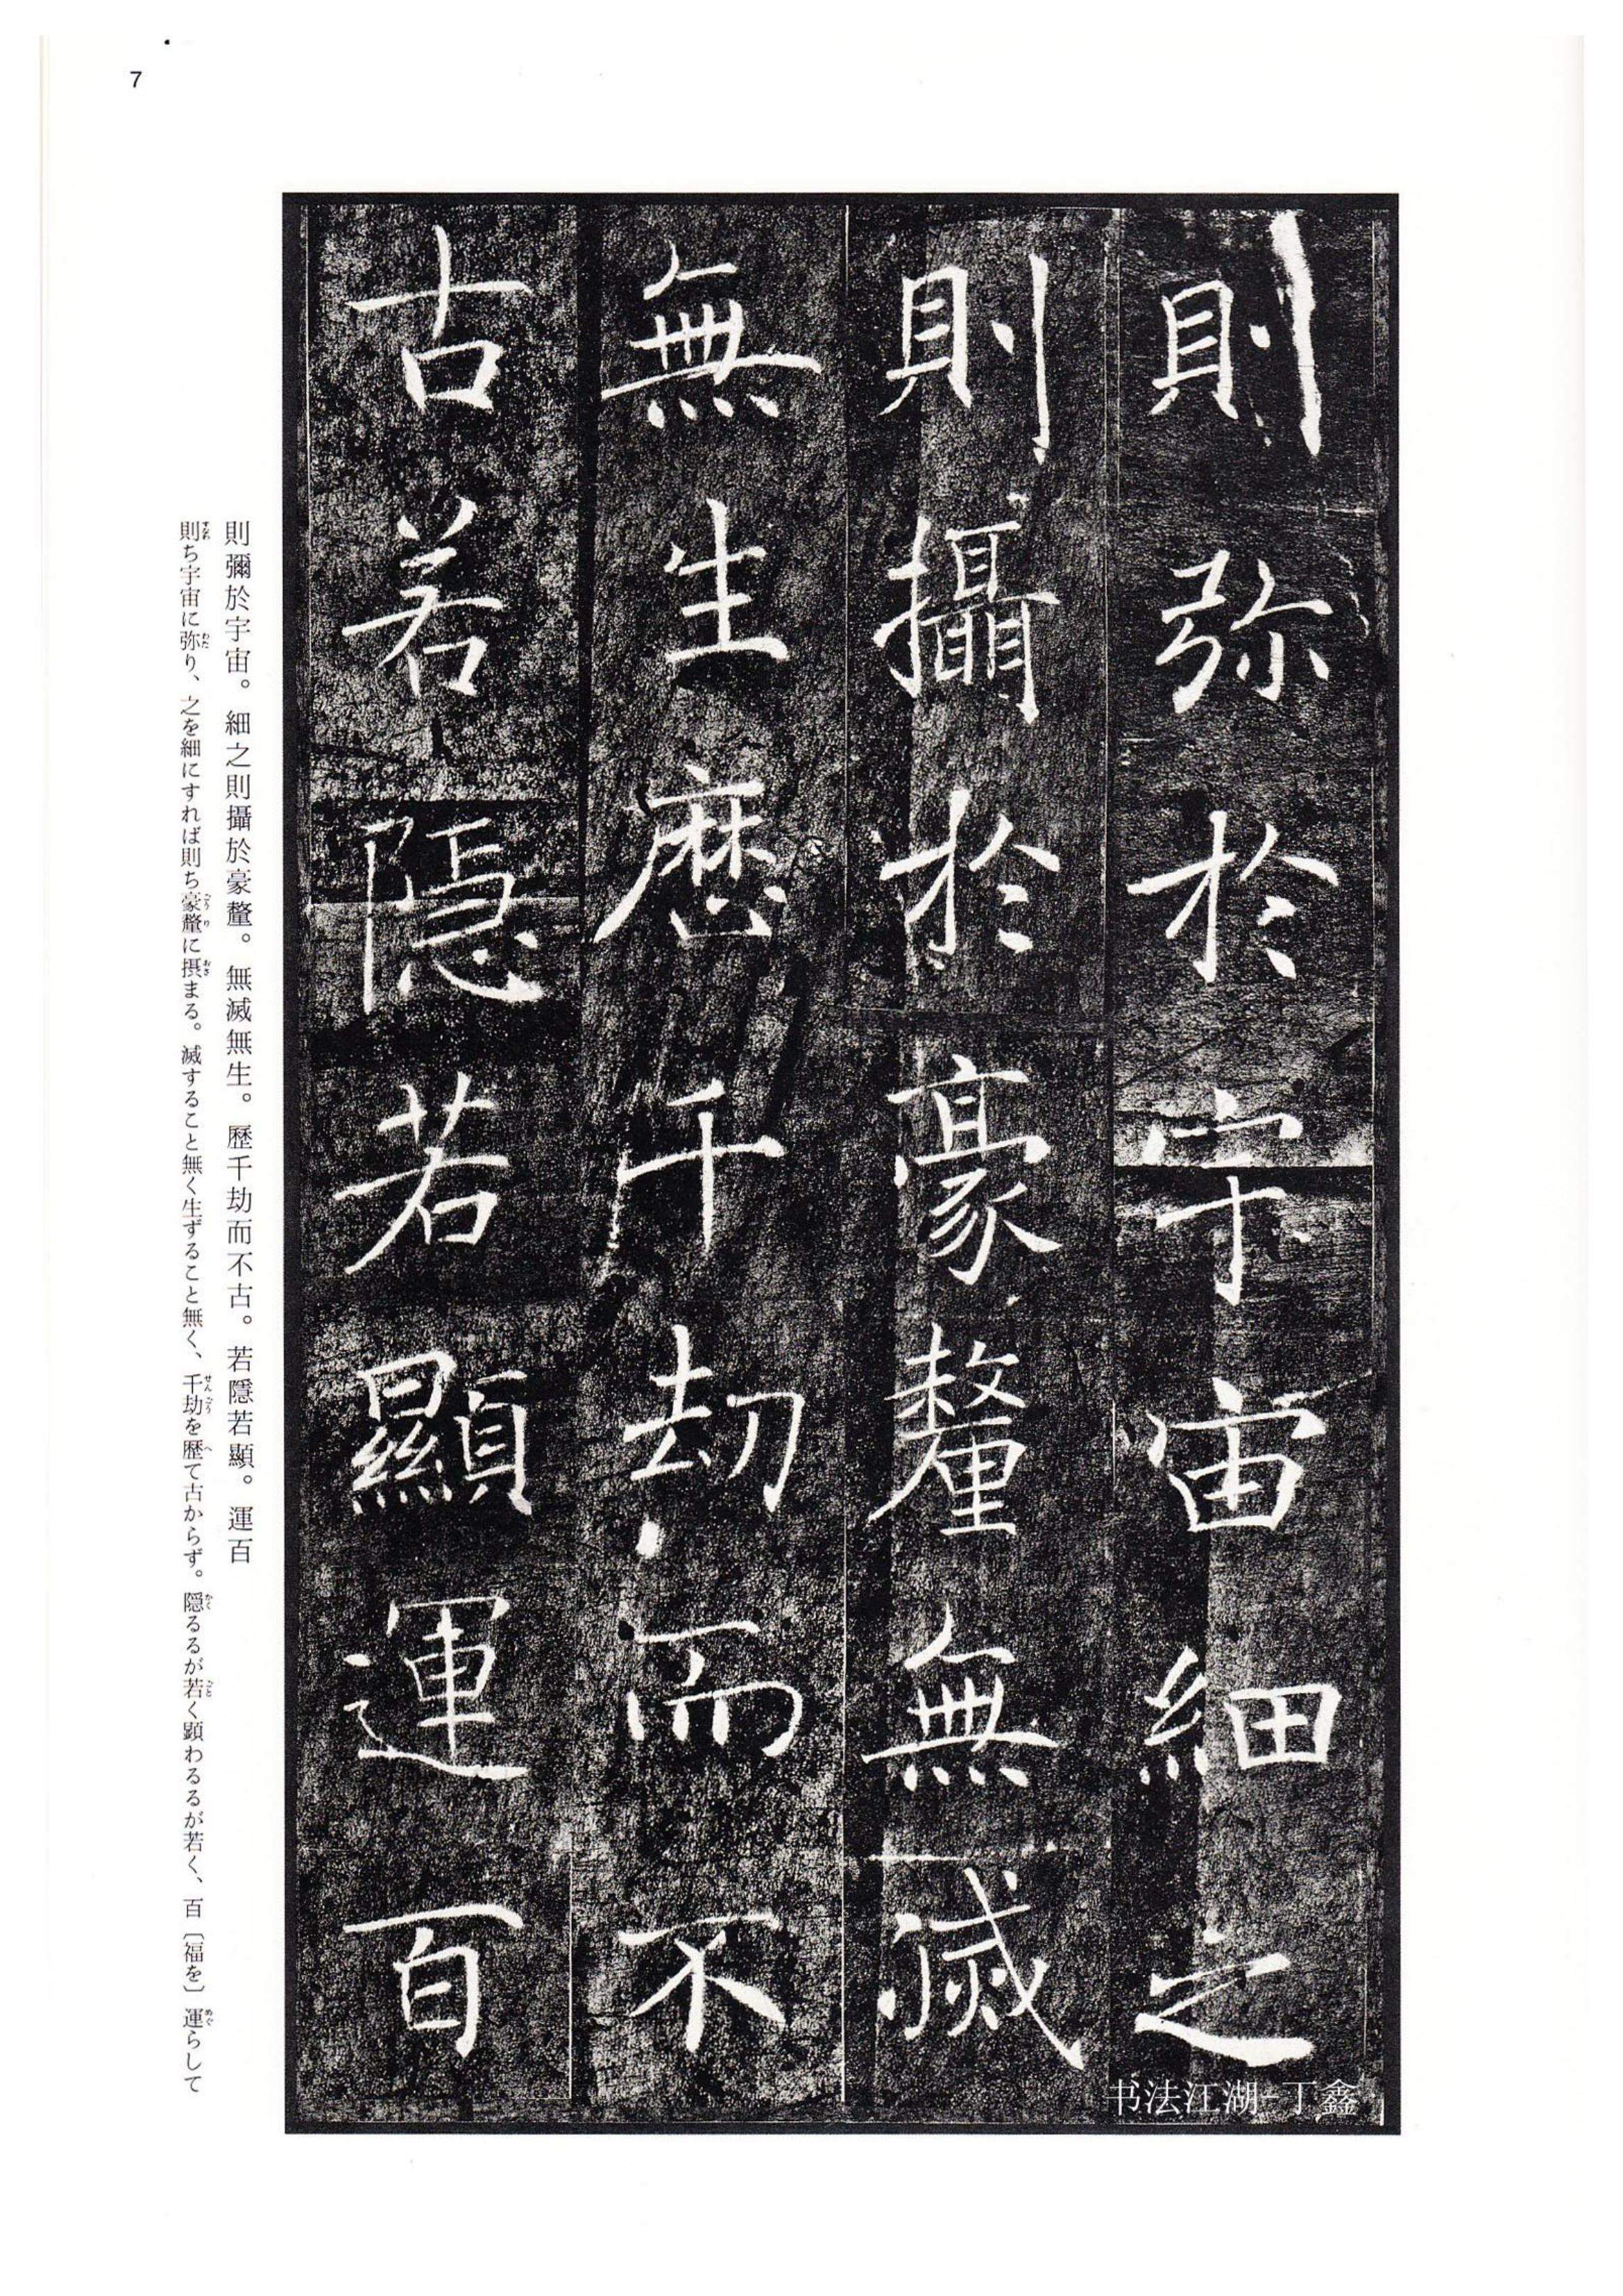 7
則弥於宇宙細之
則攝於豪釐無滅
無生歴千劫而不
古若隱若顯運百
則彌於宇宙。細之則攝於豪釐。無滅無生。歷千劫而不古。若隱若顯。運百
則ち宇宙に弥り、之を細にすれば則ち豪釐に摂まる。滅すること無く生ずること無く、千劫を歴て古からず。隠るるが若く顕わるるが若く、百〔福を〕運らして
书法江湖-丁鑫